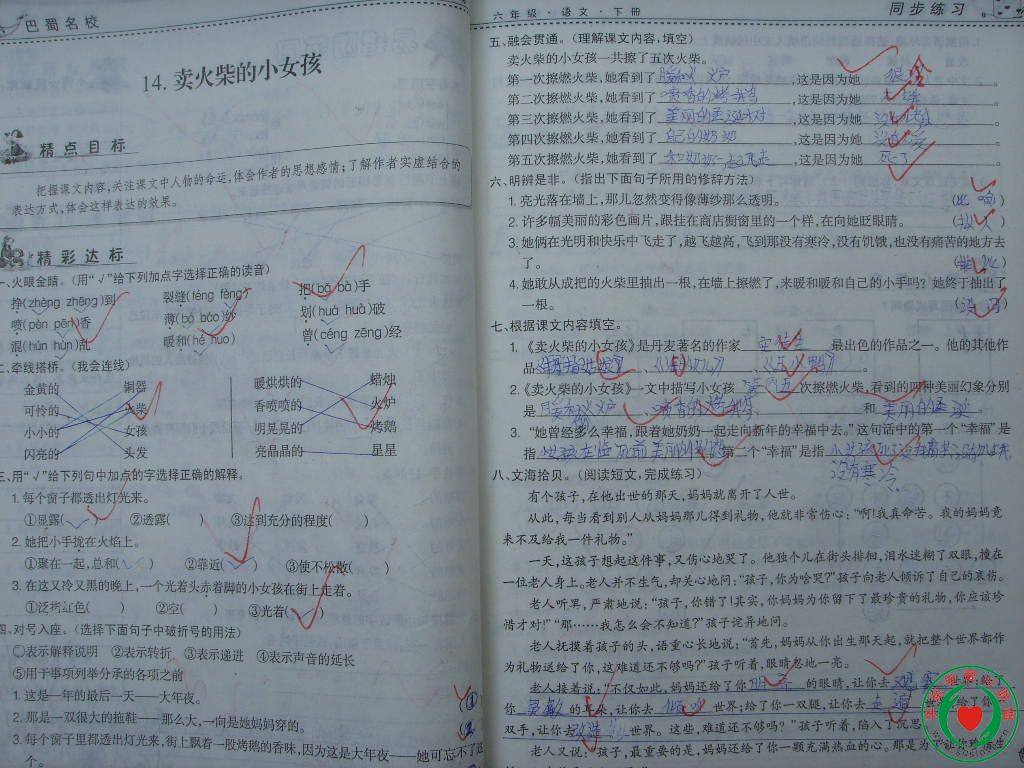 巴蜀名校
14. 卖火柴的小女孩
精点目标
把握课文内容,关注课文中人物的命运,体会作者的思想感情;了解作者实虚结合的
表达方式,体会这样表达的效果。
精彩达标
一、火眼金睛。(用“√”给下列加点字选择正确的读音)
挣(zhèng zhēng)到 裂缝(féng fèng) 把(bǎ bà)手
喷(pèn pēn)香 薄(bó báo)纱 划(huà huá)破
混(hún hùn)乱 暖和(hé huo) 曾(céng zēng)经
二、牵线搭桥。(我会连线)
金黄的 铜器 暖烘烘的 蜡烛
可怜的 火柴 香喷喷的 火炉
小小的 女孩 明晃晃的 烤鹅
闪亮的 头发 亮晶晶的 星星
三、用“√”给下列句中加点的字选择正确的解释。
1. 每个窗子都透出灯光来。
①显露(√) ②透露( ) ③达到充分的程度( )
2. 她把小手拢在火焰上。
①聚在一起,总和( ) ②靠近(√) ③使不松散( )
3. 在这又冷又黑的晚上,一个光着头赤着脚的小女孩在街上走着。
①泛指红色( ) ②空( ) ③光着(√)
四、对号入座。(选择下面句子中破折号的用法)
①表示解释说明 ②表示转折 ③表示递进 ④表示声音的延长
⑤用于事项列举分承的各项之前
1. 这是一年的最后一天——大年夜。 (①)
2. 那是一双很大的拖鞋——那么大,一向是她妈妈穿的。
3. 每个窗子里都透出灯光来,街上飘着一股烤鹅的香味,因为这是大年夜——她可忘不了这
个。
六年级·语文·下册
同步练习
五、融会贯通。(理解课文内容,填空)
卖火柴的小女孩一共擦了五次火柴。
第一次擦燃火柴,她看到了 ,这是因为她 很冷 。
第二次擦燃火柴,她看到了 喷香的烤鹅 ,这是因为她 。
第三次擦燃火柴,她看到了 美丽的圣诞树 ,这是因为她 。
第四次擦燃火柴,她看到了 自己的奶奶 ,这是因为她 。
第五次擦燃火柴,她看到了 和奶奶一起飞走 ,这是因为她 死了 。
六、明辨是非。(指出下面句子所用的修辞方法)
1. 亮光落在墙上,那儿忽然变得像薄纱那么透明。 (比喻)
2. 许多幅美丽的彩色画片,跟挂在商店橱窗里的一个样,在向她眨眼睛。 (拟人)
3. 她俩在光明和快乐中飞走了,越飞越高,飞到那没有寒冷,没有饥饿,也没有痛苦的地方去
了。 (排比)
4. 她敢从成把的火柴里抽出一根,在墙上擦燃了,来暖和暖和自己的小手吗?她终于抽出了
一根。 (设问)
七、根据课文内容填空。
1. 《卖火柴的小女孩》是丹麦著名的作家 安徒生 最出色的作品之一。他的其他作
品
2. 《卖火柴的小女孩》一文中描写小女孩 次擦燃火柴,看到的四种美丽幻象分别
是 、喷香的烤鹅、 和 美丽的圣诞
3. “她曾经多么幸福,跟着她奶奶一起走向新年的幸福中去。”这句话中的第一个“幸福”是
指 ,第二个“幸福”是指
没有寒冷
八、文海拾贝。(阅读短文,完成练习)
有个孩子,在他出世的那天,妈妈就离开了人世。
从此,每当看到别人从妈妈那儿得到礼物,他就非常伤心:“啊!我真命苦。我的妈妈竟
来不及给我一件礼物。”
一天,这孩子想起这件事,又伤心地哭了。他独个儿在街头徘徊,泪水迷糊了双眼,撞在
一位老人身上。老人并不生气,却关心地问:“孩子,你为啥哭?”孩子向老人倾诉了自己的哀伤。
老人听罢,严肃地说:“孩子,你错了!其实,你妈妈为你留下了最珍贵的礼物,你应该珍
惜才对!”“那……我怎么会不知道?”孩子诧异地问。
老人抚摸着孩子的头,语重心长地说:“首先,妈妈从你出生那天起,就把整个世界都作
为礼物送给了你,这难道还不够吗?”孩子听着,眼睛忽地一亮。
老人接着说:“不仅如此,妈妈还给了你 明亮 的眼睛,让你去 观察 世界;给了
你 灵敏 的耳朵,让你去 倾听 世界;给了你一双腿,让你去 走遍 世界;给了你
双手,让你去 改造 世界。这些,难道还不够吗?”孩子听着,陷入了沉思。
老人又说:“孩子,最重要的是,妈妈还给了你一颗充满热血的心。那是为了让你